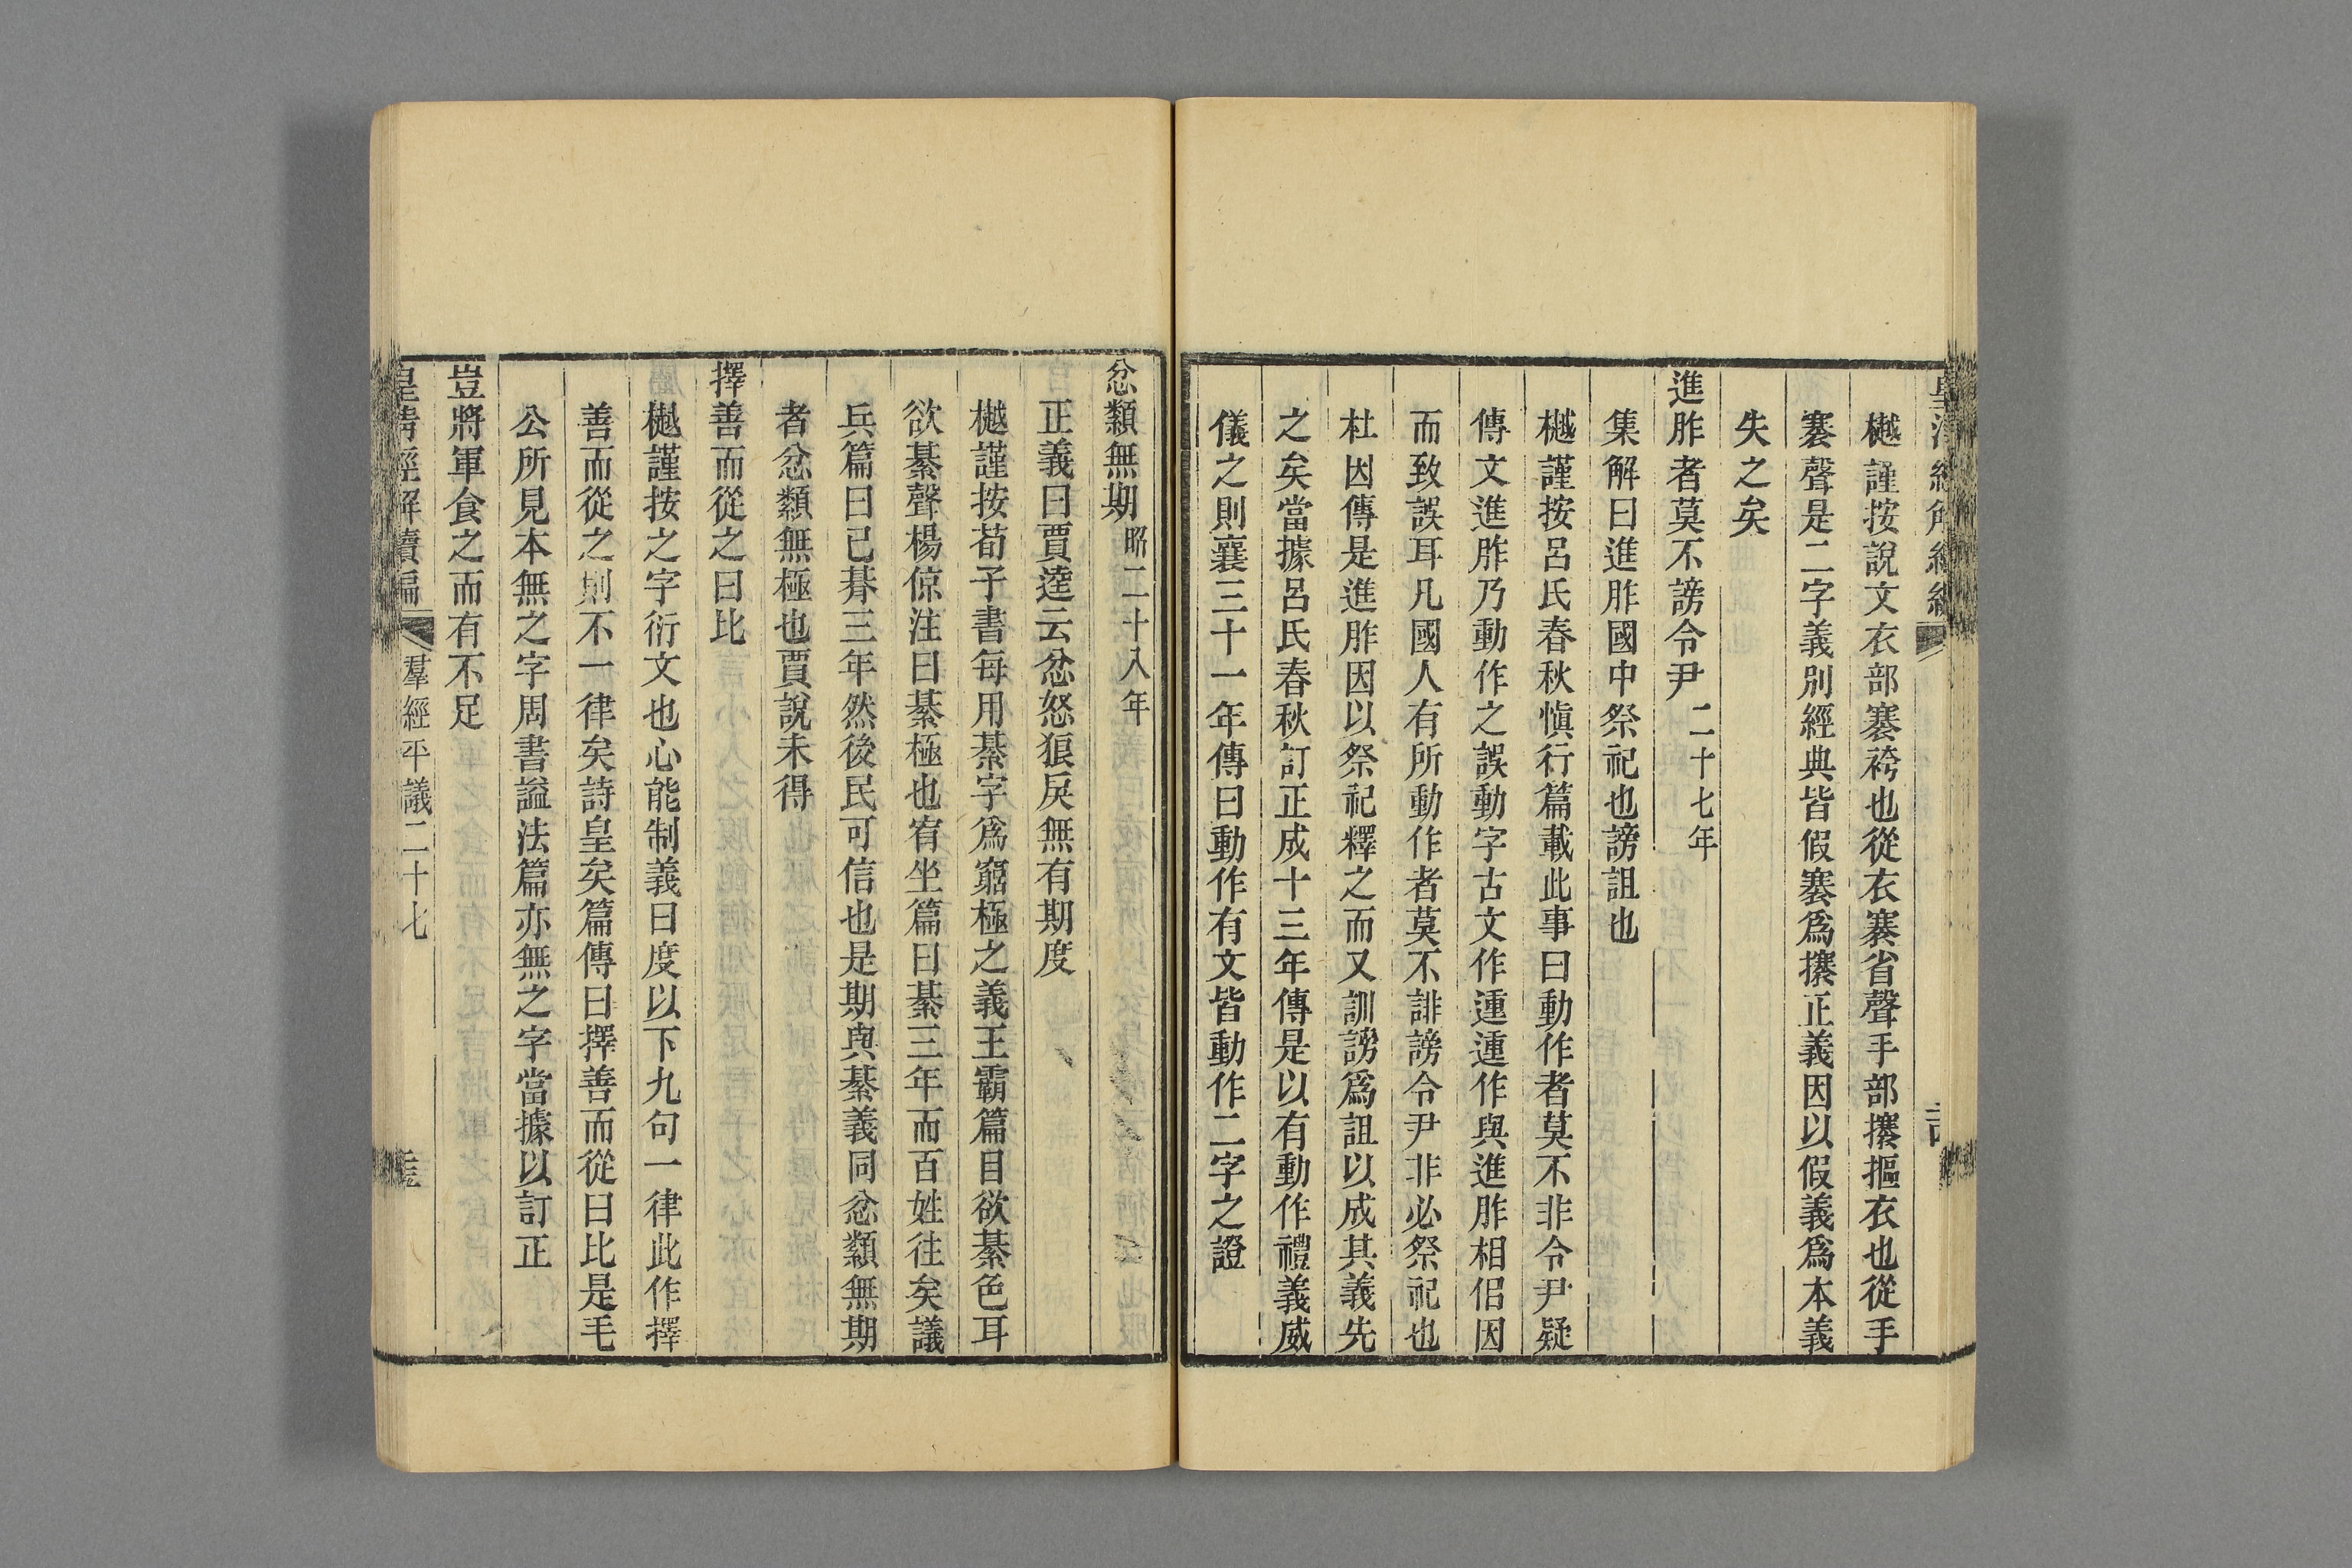 樾謹按說文衣部褰袴也從衣寒省聲手部攐摳衣也從手
褰聲是二字義別經典皆假褰爲攐正義因以假義爲本義
失之矣
進胙者莫不謗令尹二十七年
集解曰進胙國中祭祀也謗詛也
樾謹按呂氏春秋愼行篇載此事曰動作者莫不非令尹疑
傳文進胙乃動作之誤動字古文作運運作與進胙相侣因
而致誤耳凡國人有所動作者莫不誹謗令尹非必祭祀也
杜因傳是進胙因以祭祀釋之而又訓謗爲詛以成其義先
之矣當據呂氏春秋訂正成十三年傳是以有動作禮義威
儀之則襄三十一年傳曰動作有文皆動作二字之證
忿纇無期昭二十八年
正義曰賈逵云忿怒狠戾無有期度
樾謹按荀子書每用綦字爲窮極之義王霸篇目欲綦色耳
欲綦聲楊倞注曰綦極也宥坐篇曰綦三年而百姓往矣議
兵篇曰已朞三年然後民可信也是期與綦義同忿纇無期
者忿纇無極也賈說未得
擇善而從之曰比
樾謹按之字衍文也心能制義曰度以下九句一律此作擇
善而從之則不一律矣詩皇矣篇傳曰擇善而從曰比是毛
公所見本無之字周書謚法篇亦無之字當據以訂正
豈將軍食之而有不足
皇清經解續編 羣經平議二十七